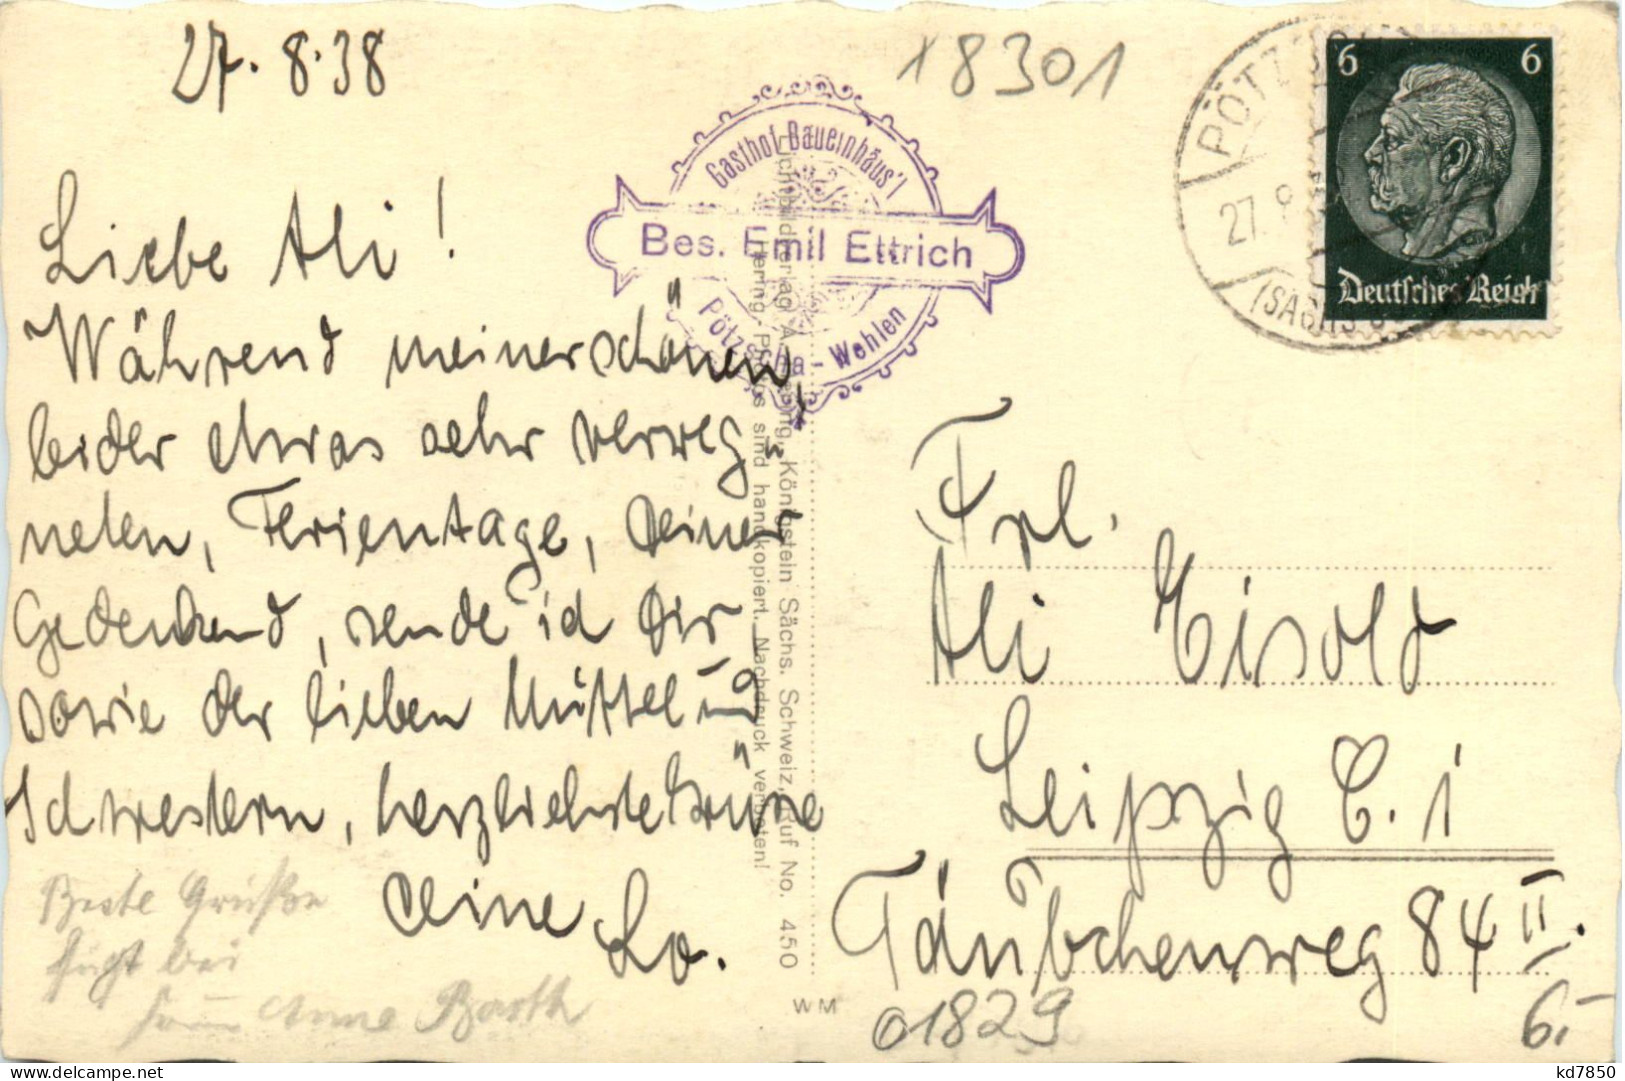 27.8.38
18301
Liebe Ali!
Während meiner schönen,
leider etwas sehr verreg-
neten, Ferientage, Deiner
Gedenkend, sende ich Dir
sowie der lieben Muttel und
Schwestern, herzlichste Grüße
Deine Lo.
Beste Grüße
fügt bei
Anne Barth
Gasthof Bauernhäus'l
Bes. Emil Ettrich
Pötzscha-Wehlen
Hering, Königstein Sächs. Schweiz, Ruf No. 450
Hering-Photos sind handkopiert. Nachdruck verboten!
WM
PÖTZSCHA
27.8
(SÄCHS
6 6
Deutsches Reich
Frl.
Ali Eisold
Leipzig C. 1
Täubchenweg 84 II.
01829
6.-
kd7850